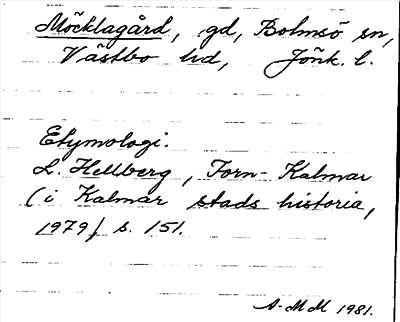 Möcklagård, gd, Bolmsö sn,
Västbo hd, Jönk. l.
Etymologi.
L. Hellberg, Forn-Kalmar
(i Kalmar stads historia,
1979) s. 151.
A-MM 1981.